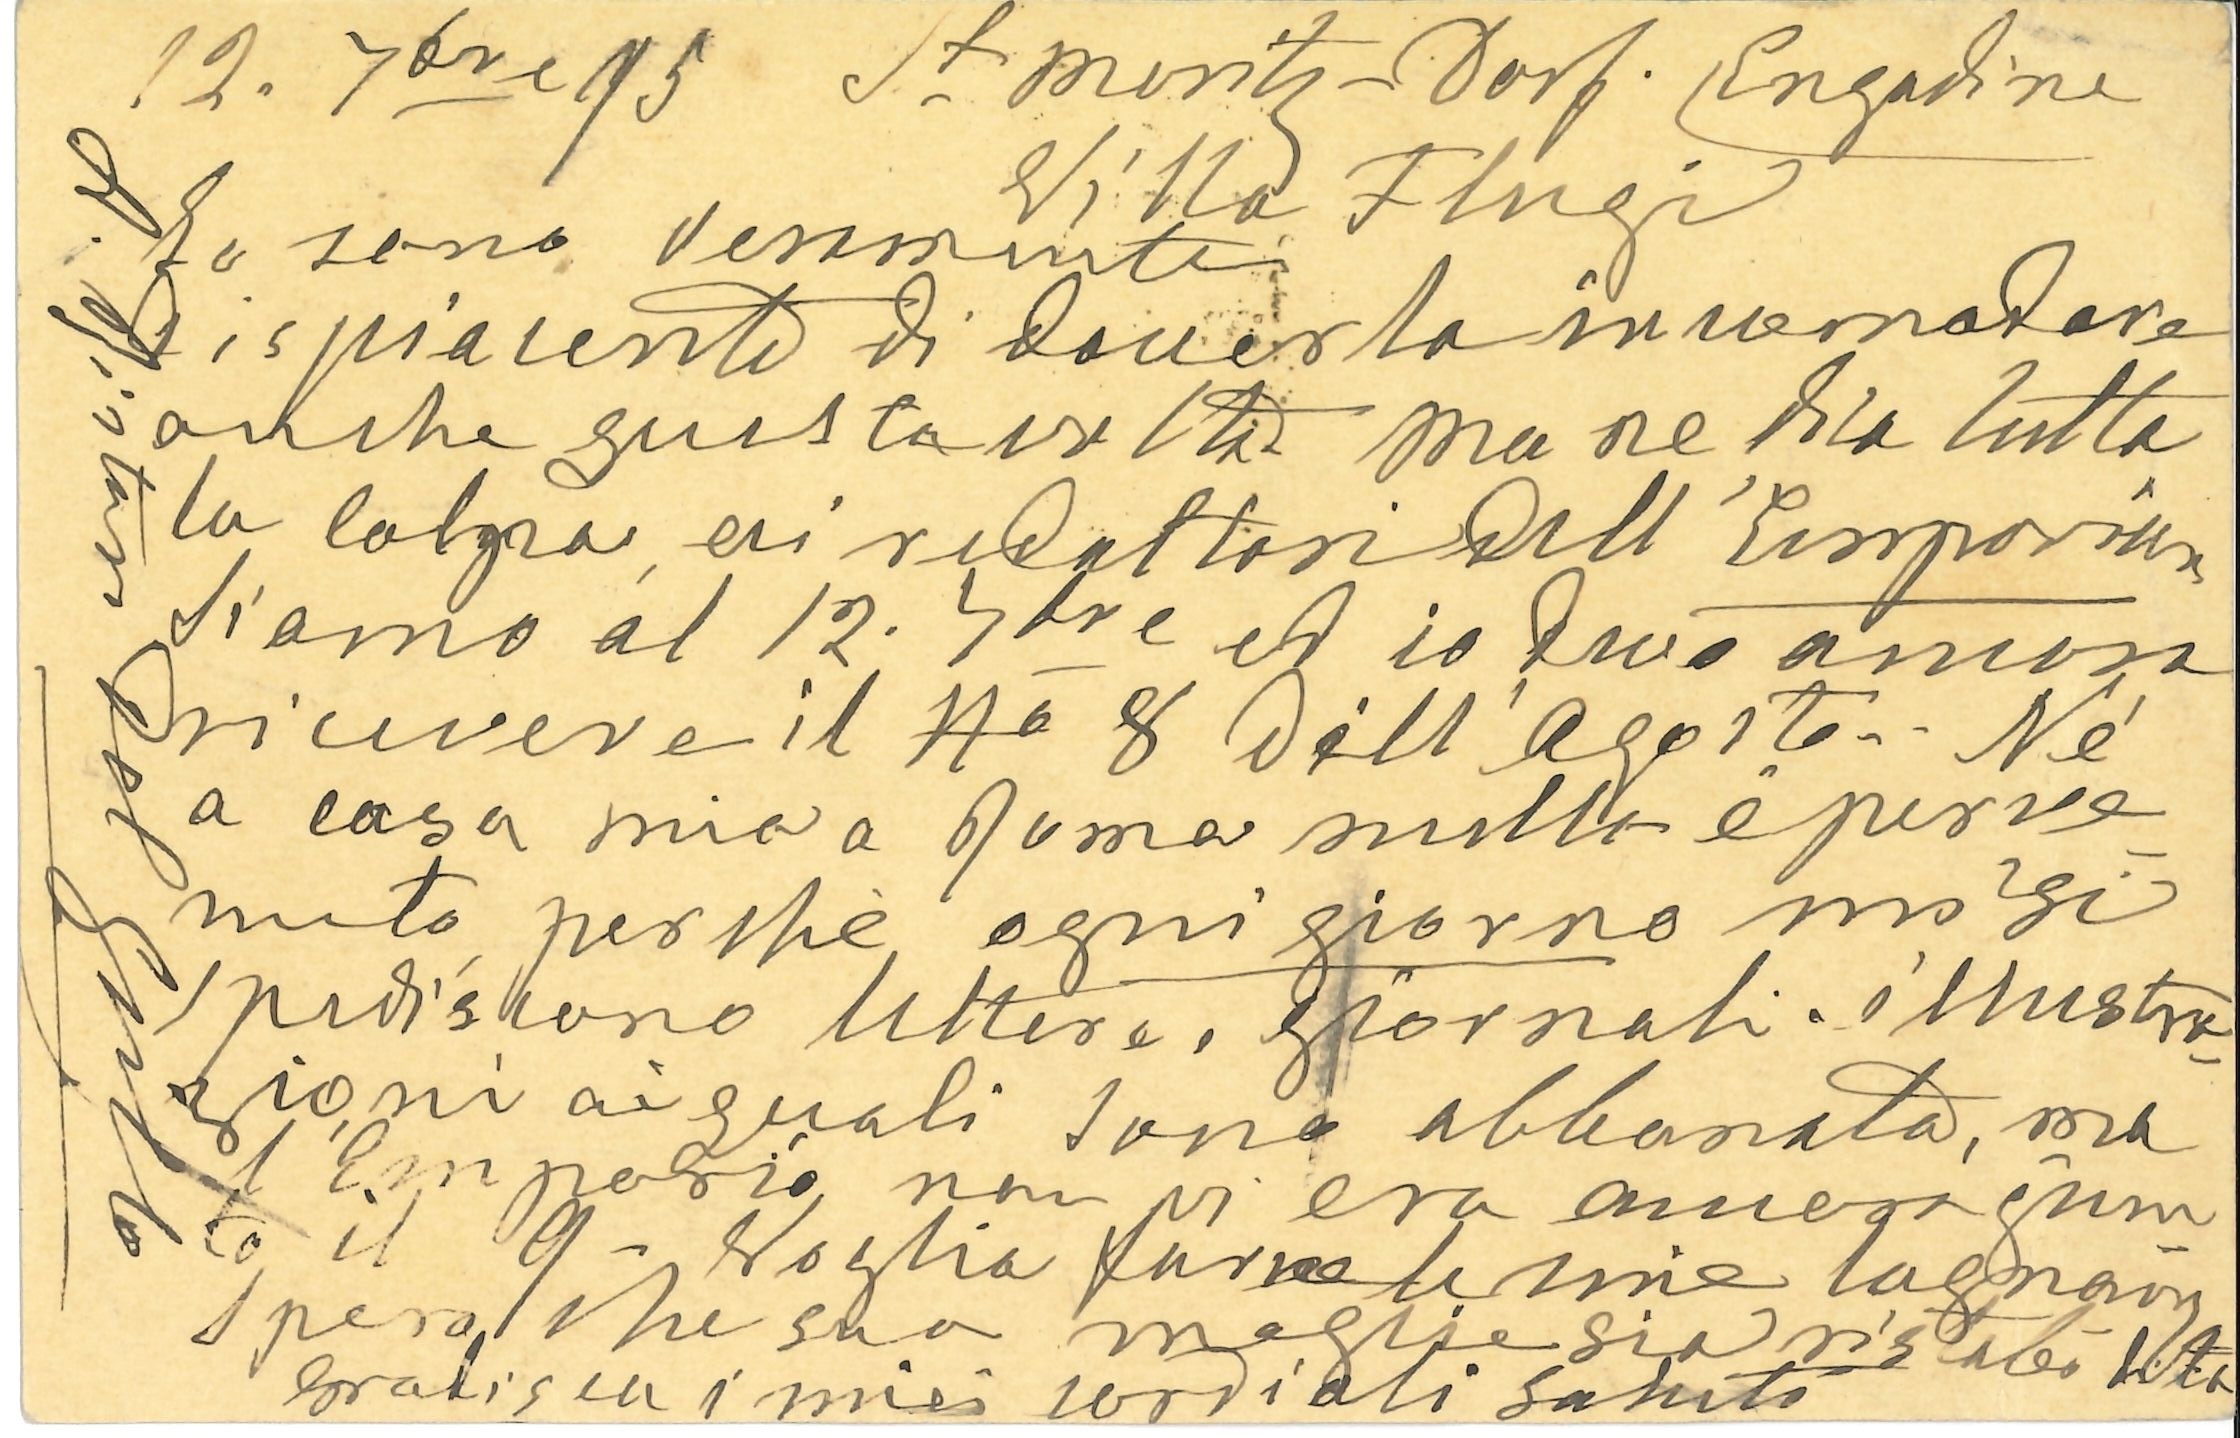 12. 7bre 95 St Moritz-Dorf. Engadine
Villa Flugi
Io sono veramente
dispiacente di doverla incomodare
anche questa volta ma ne dia tutta
la colpa, ai redattori dell'Emporium
Siamo al 12. 7bre ed io devo ancora
ricevere il No 8 dell'Agosto.. Né
a casa mia a Roma nulla è perve-
nuto, perchè ogni giorno mi si
spediscono lettere, giornali. illustra-
zioni ai quali sono abbonata, ma
l'Emporio non vi era ancora giun-
to il 9 - Voglia farne le mie lagnanze
Spero che sua moglie sia ristabilita
Gradisca i miei cordiali saluti